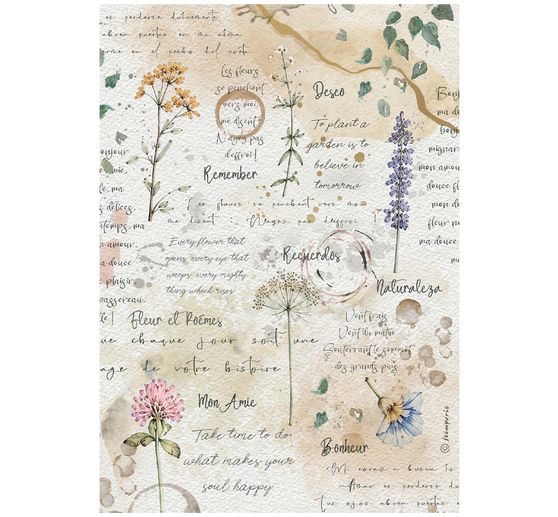 perderse dulcemente
abren puertas en mi alma
en el pecho del poeta
Les fleurs
se penchent
vers moi,
me disent:
N'ayez pas
d'effroi!
Remember
Deseo
To plant a
garden is to
believe in
tomorrow
bonjour
ma
délices,
ma
amour.
ma douce
plaisir.
passereau.
Bonj
mon amour
douce
mon
ma douce
fleurs se penchent vers mo
me disent: N'ayez pas d'effroi!
Every flower that
opens, every eye that
weeps, every mighty
thing which rises
Recuerdos
Naturaleza
Fleur et Poémes
que chaque jour soit une
age de votre histoire
Vent frais
Vent du matin
Soulevant le sommet
des grands pins
Mon Amie
Take time to do
what makes your
soul happy
Bonheur
© stamperia
M corazon a busca
Amar es perderse du
Tus ojos abren puertas en